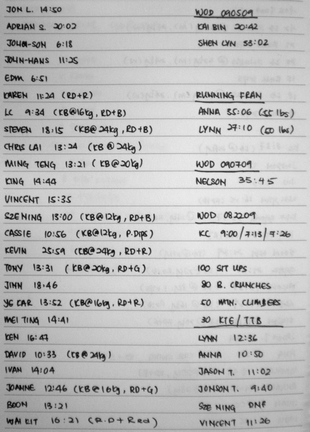 JON L. 14:50
ADRIAN S. 20:02
JOHN-SON 6:18
JOHN-HANS 11:25
EDM 6:51
KAREN 11:24 (RD+R)
LC 9:34 (KB@16kg, RD+B)
STEVEN 18:15 (KB@24kg, RD+B)
CHRIS LAI 13:24 (KB@24kg)
MING TENG 13:21 (KB@20kg)
KING 14:44
VINCENT 15:35
SZE NING 13:00 (KB@12kg, RD+B)
CASSIE 10:56 (KB@12kg, P.Dips)
KEVIN 25:59 (KB@24kg, RD+R)
TONY 13:31 (KB@20kg, RD+G)
JINN 18:46
YE CAR 13:52 (KB@16kg, RD+R)
MEI TING 14:41
KEN 16:47
DAVID 10:33 (KB@24kg)
IVAN 14:04
JOANNE 12:46 (KB@16kg, RD+G)
BOON 13:21
WAI KIT 16:21 (R.D+Red)
WOD 090509
KAI BIN 20:42
SHEN LYN 33:02
RUNNING FRAN
ANNA 35:06 (55 lbs)
LYNN 27:10 (50 lbs)
WOD 090709
NELSON 35:45
WOD 082209
KC 9:00/7:13/7:26
100 SIT UPS
80 B. CRUNCHES
50 MTN. CLIMBERS
30 KTE/TTB
LYNN 12:36
ANNA 10:50
JASON T. 11:02
JONSON T. 9:40
SZE NING DNF
VINCENT 11:26